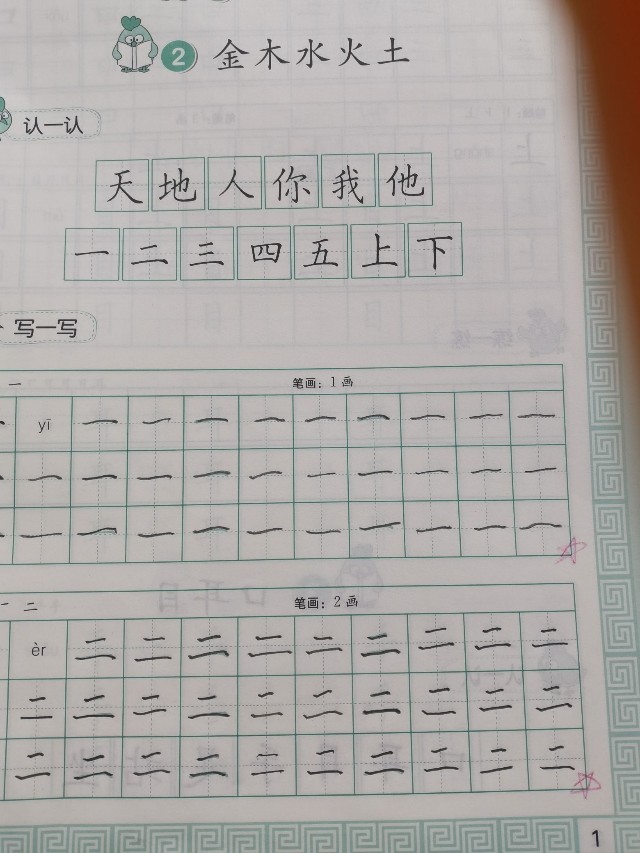 2 金木水火土
认一认
天地人你我他
一二三四五上下
写一写
一 笔画：1画
yī 一 一 一 一 一 一 一 一 一
一 一 一 一 一 一 一 一 一 一
一 一 一 一 一 一 一 一 一 一
一 二 笔画：2画
èr 二 二 二 二 二 二 二 二 二
二 二 二 二 二 二 二 二 二 二
二 二 二 二 二 二 二 二 二 二
1